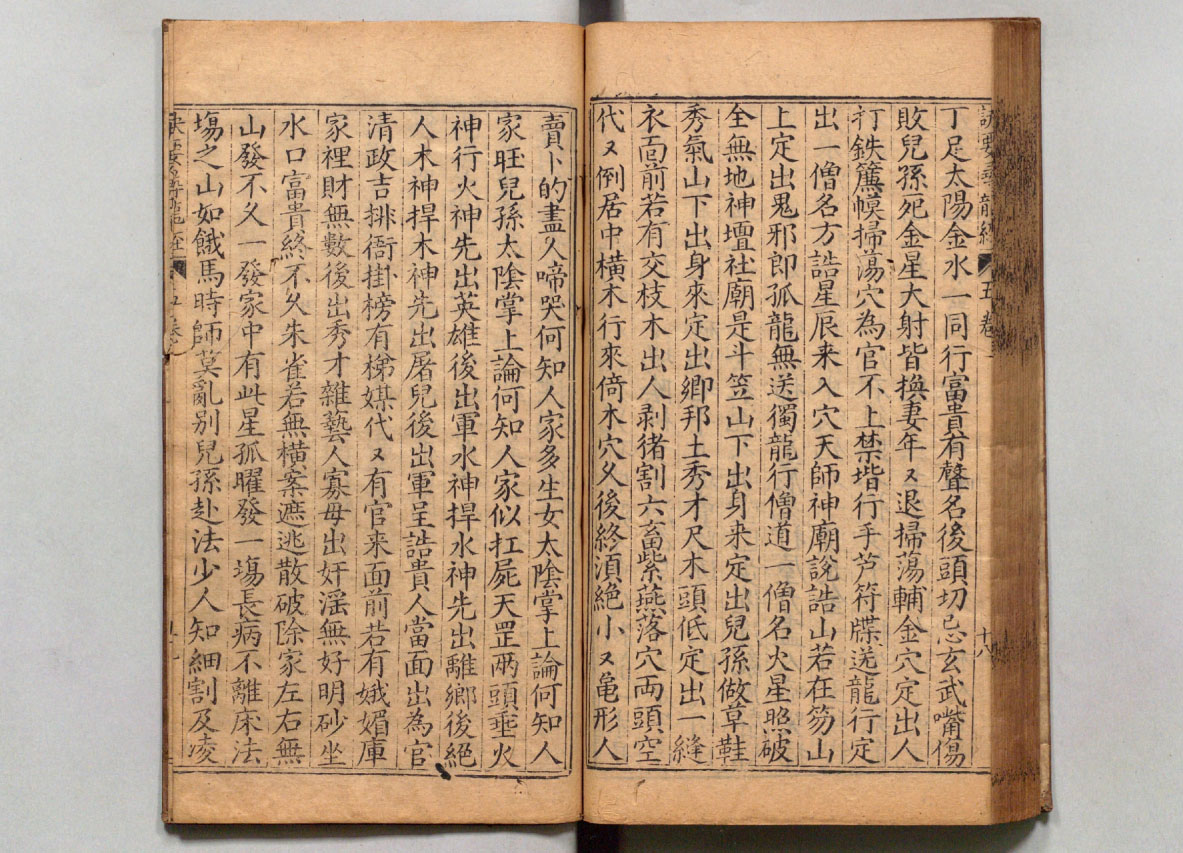 訣要尋龍經 五卷 十八
丁足太陽金水一同行富貴有聲名後頭切忌玄武嘴傷
敗兒孫死金星大射皆換妻年又退掃蕩輔金穴定出人
打鉄簾幙掃蕩穴為官不上禁堦行手芦符牒送龍行定
出一僧名方誥星辰来入穴天師神廟說誥山若在笏山
上定出鬼邪郎孤龍無送獨龍行僧道一僧名火星照破
全無地神壇社廟是斗笠山下出身来定出兒孫做草鞋
秀氣山下出身來定出鄉邦土秀才尺木頭低定出一縫
衣面前若有交枝木出人剥猪割六畜紫燕落穴両頭空
代又例居中橫木行來倚木穴久後終須絕小又亀形人
賣卜的盡人啼哭何知人家多生女太陰掌上論何知人
家旺兒孫太陰掌上論何知人家似扛屍天罡兩頭垂火
神行火神先出英雄後出軍水神捍水神先出離鄉後絕
人木神捍木神先出屠兒後出軍呈誥貴人當面出為官
清政吉排衙掛榜有梯媒代又有官来面前若有娥媚庫
家裡財無數後出秀才雜藝人寡母出奸滛無好明砂坐
水口富貴終不久朱雀若無橫案遮逃散破除家左右無
山發不久一發家中有此星孤曜發一塲長病不離床法
塲之山如餓馬時師莫亂別兒孫赴法少人知細割及凌